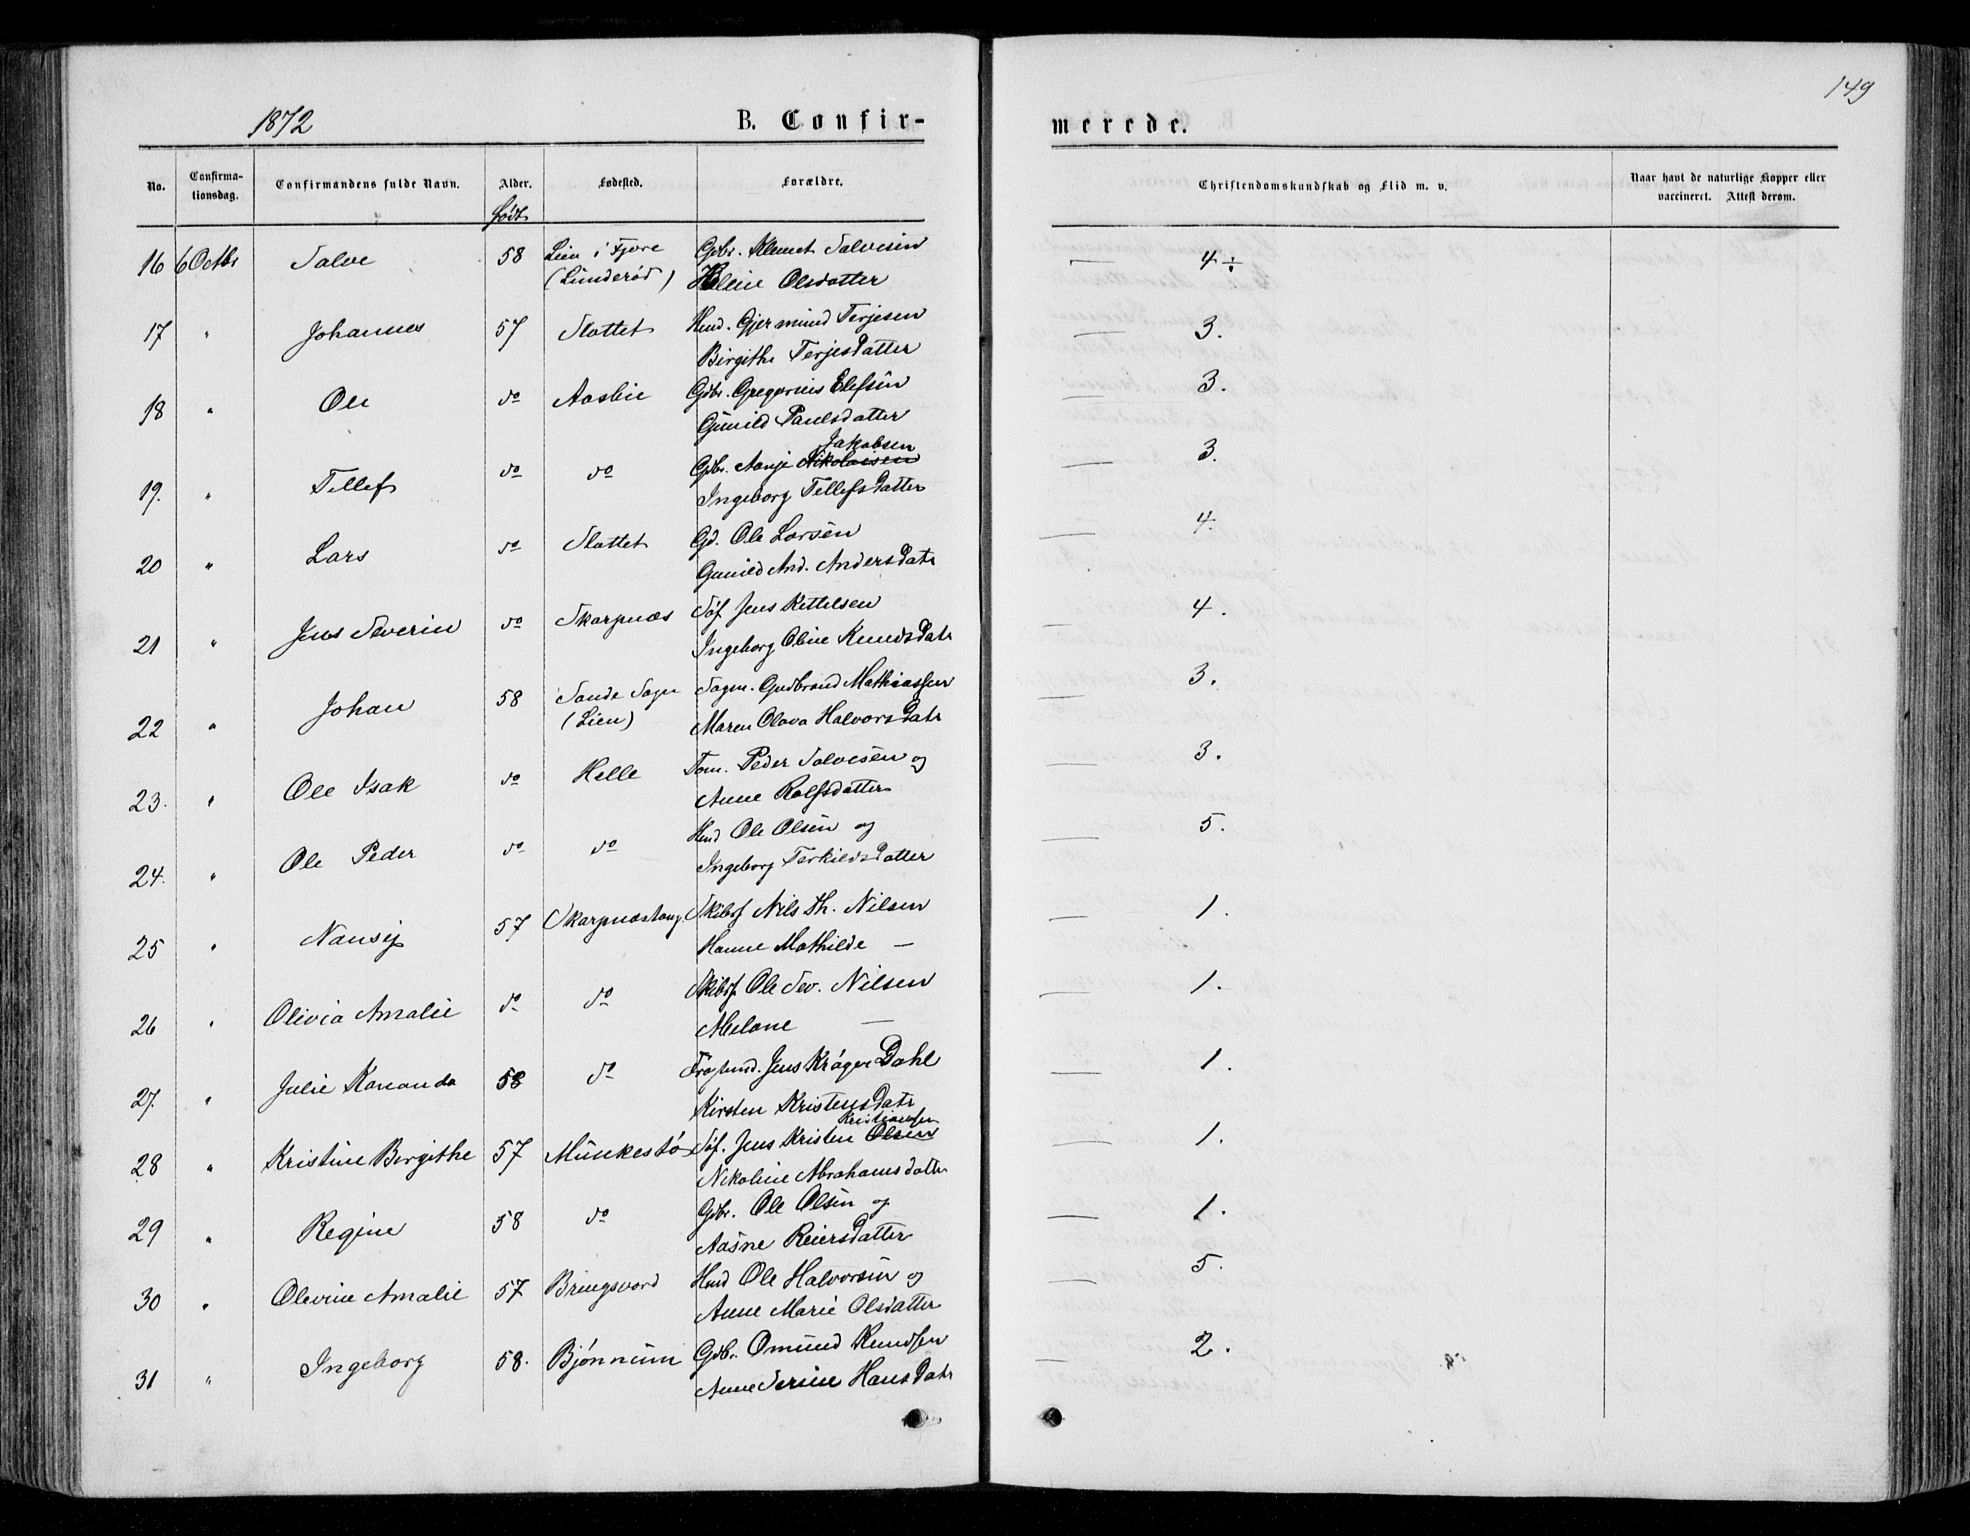 149
1872 B. Confir- merede.
No. Confirma- tionsdag. Confirmandens fulde Navn. Alder. Fødested. Forældre. Christendomskundskab og Flid m. v. Naar havt de naturlige Kopper eller
vaccineret. Attest derom.
født
16 6 Octbr Salve 58 Lien i Fjære Gdbr. Klemet Salvesen — 4 ÷
(Lunderød) Helene Olsdatter
17 " Johannes 57 Slottet Huud. Gjermund Terjesen — 3.
Birgithe Terjesdatter
18 " Ole do Aasbie Gdbr. Gregorius Elefsen — 3.
Gunild Paulsdatter
Jakobsen
19. " Tellef do do Gdbr. Aanje Nikolaisen — 3.
Ingeborg Tellefsdatter
20 " Lars do Slottet Gd. Ole Larsen — 4.
Gunild And. Andersdatr
21 " Jens Severin do Skarpnæs Søf. Jens Kittelsen — 4.
Ingeborg Oline Knudsdatr
22 " Johan 58 Sande Sogn Sagm. Gudbrand Mathiassen — 3.
(Lien) Maren Olava Halvorsdatr
23. " Ole Isak do Helle Tom. Peder Salvesen og — 3.
Anne Rolfsdatter
24. " Ole Peder do do Huud Ole Olsen og — 5.
Ingeborg Terkildsdatter
25 " Nansy 57 Skarpnæstang. Skibsf Nils Th. Nilsen — 1.
Hanne Mathilde —
26 " Olivia Amalie do do Skibsf. Ole Sev. Nilsen — 1.
Melane —
27. " Julie Kananda 58 do Jens Krøger Dahl — 1.
Kirsten Kristensdatr
Kristiansen
28 " Kristine Birgithe 57 Munkestø Søf. Jens Kristen Olsen — 1.
Nikoline Abrahamsdatter
29 " Regine 58 do Gdbr. Ole Olsen og — 1.
Aasne Reiersdatter
30 " Olevine Amalie 57 Bringsvord Huud Ole Halvorsen og — 5.
Anne Marie Olsdatter
31 " Ingeborg 58. Bjønnum Gdbr. Omund Knudsen — 2.
Anne Serine Hansdatr